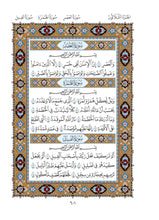 الجزء الثلاثون سورة العصر سورة الهمزة سورة الفيل
سورة العصر
بسم الله الرحمن الرحيم
والعصر إن الإنسان لفي خسر إلا الذين آمنوا
وعملوا الصالحات وتواصوا بالحق وتواصوا بالصبر
سورة الهمزة
بسم الله الرحمن الرحيم
ويل لكل همزة لمزة الذي جمع مالا وعدده يحسب
أن ماله أخلده كلا لينبذن في الحطمة وما أدراك
ما الحطمة نار الله الموقدة التي تطلع على الأفئدة
إنها عليهم مؤصدة في عمد ممددة
سورة الفيل
بسم الله الرحمن الرحيم
ألم تر كيف فعل ربك بأصحاب الفيل ألم يجعل
كيدهم في تضليل وأرسل عليهم طيرا أبابيل
ترميهم بحجارة من سجيل فجعلهم كعصف مأكول
٦٠١